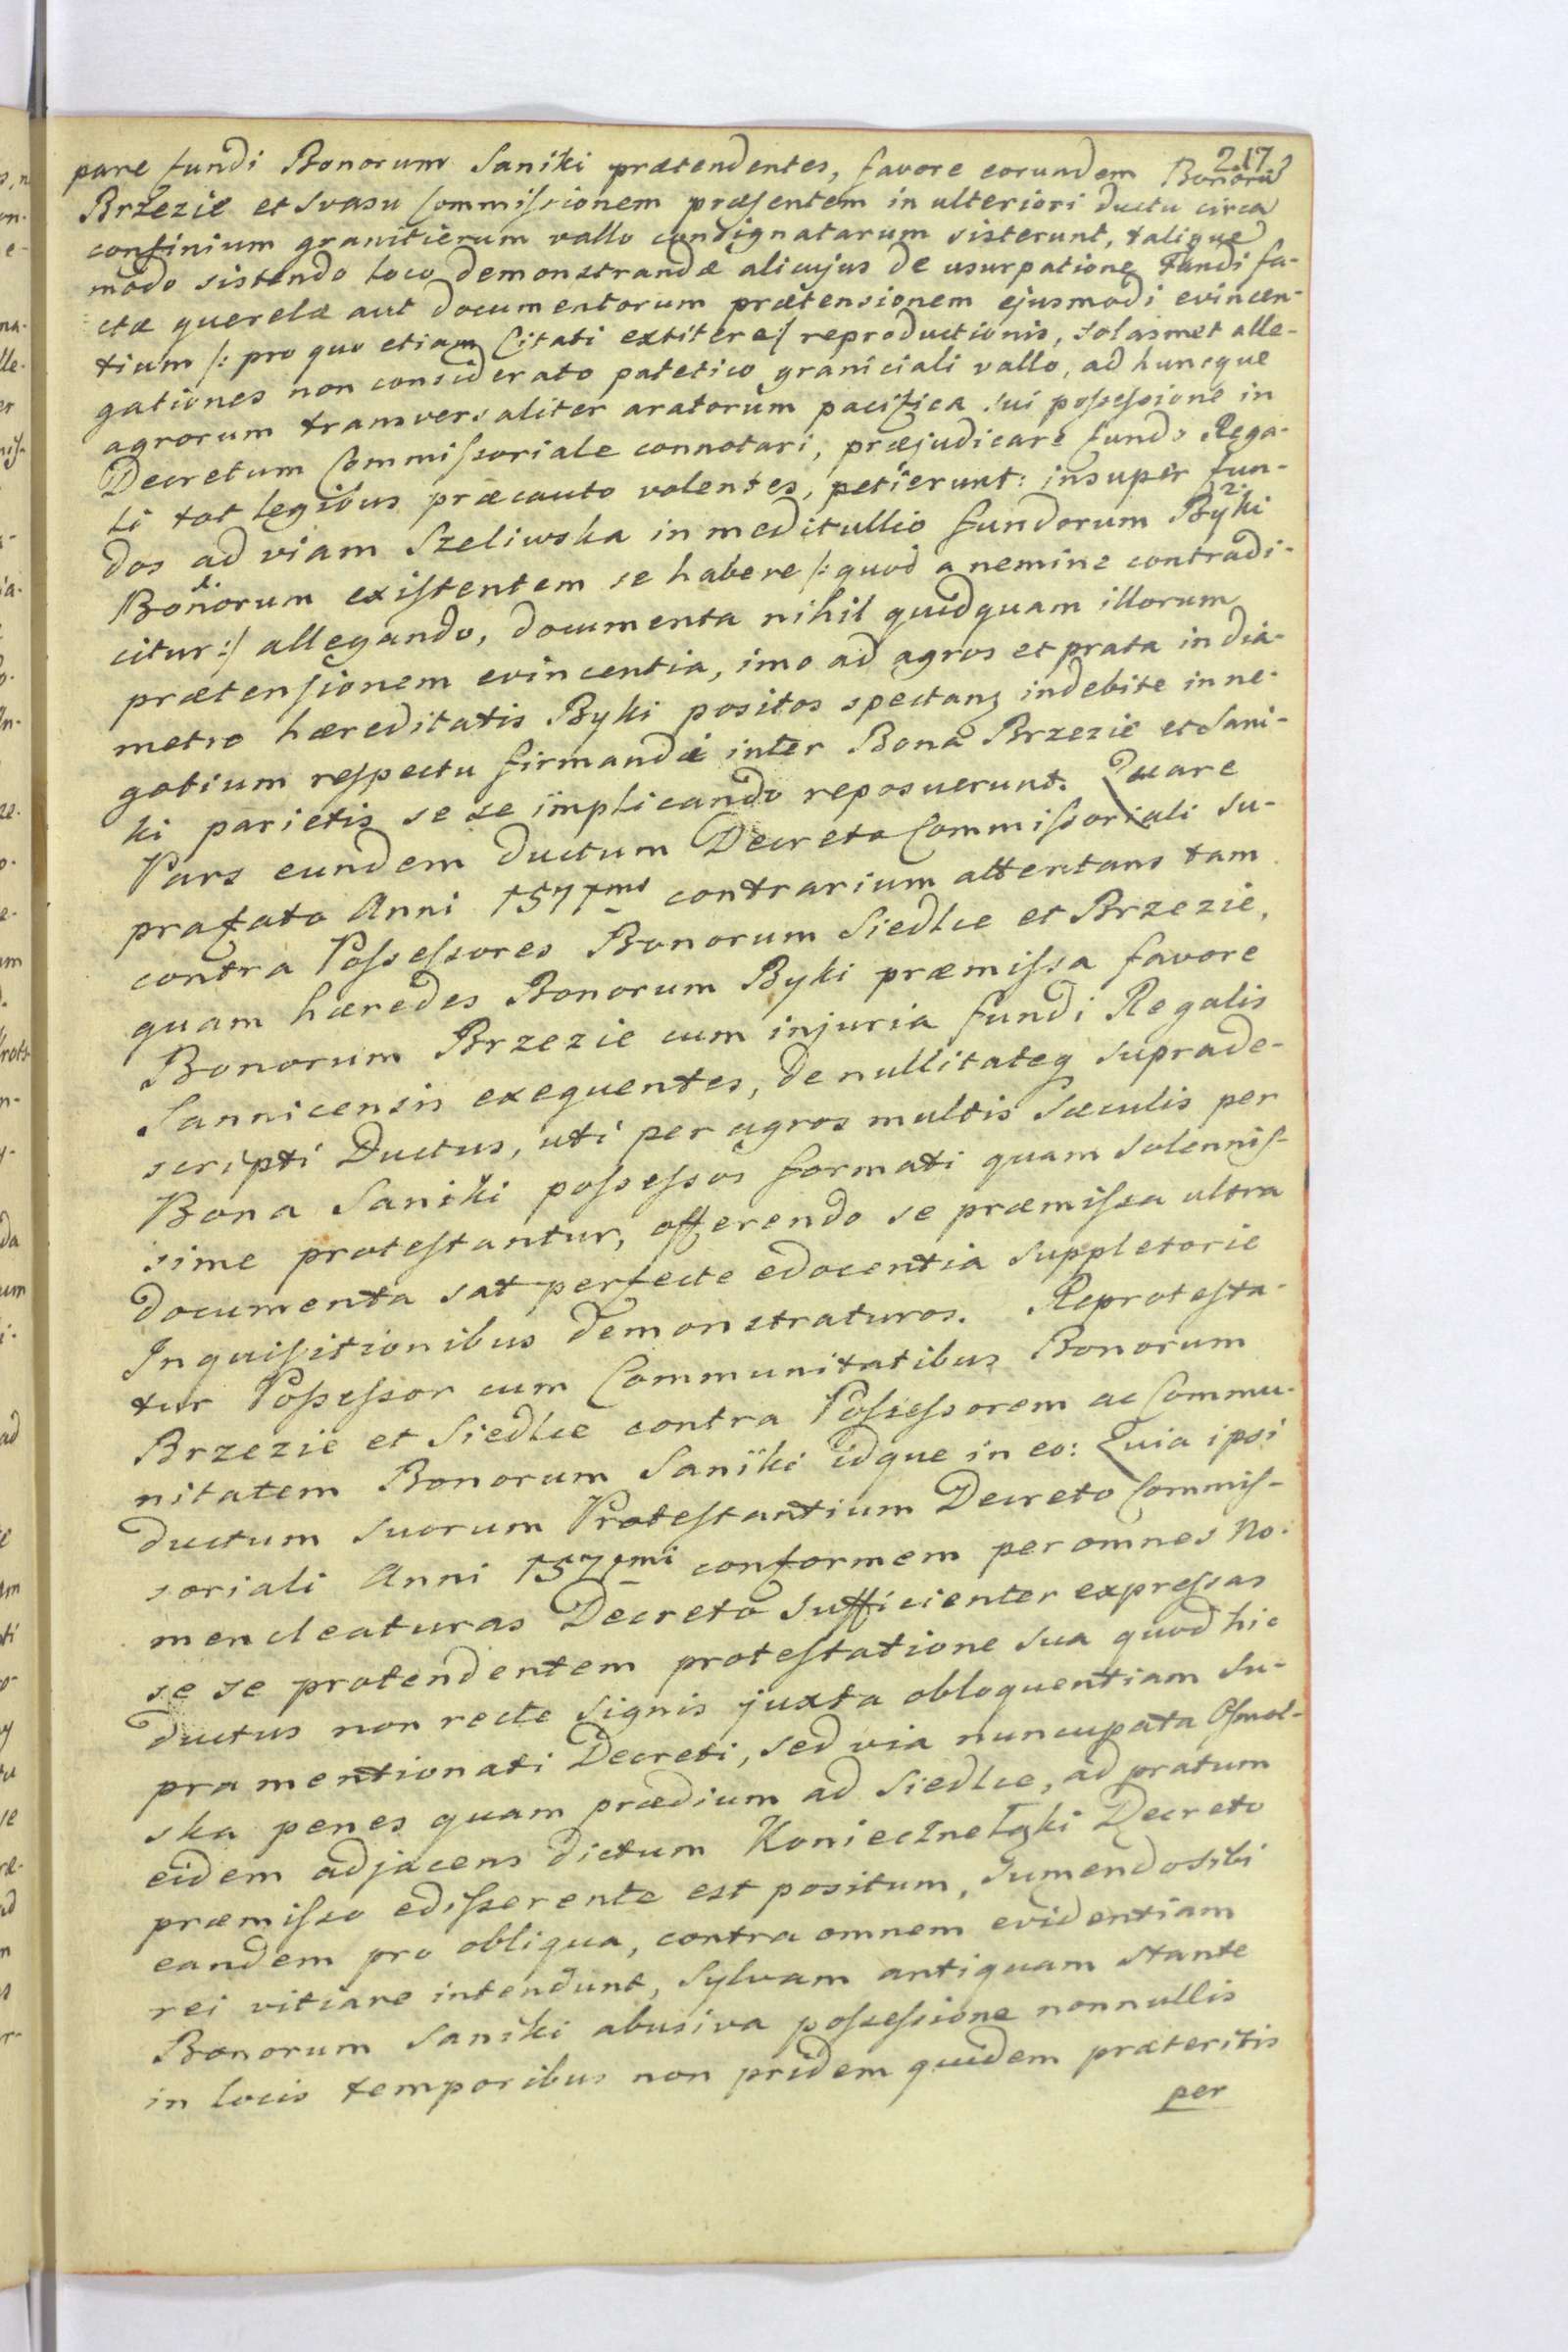 217
pare fundi Bonorum Saniki prætendentes, favore eorundem Bonorū
Brzezie et svasu Commissionem præsentem in ulteriori ductu circa
confinium granitierum vallo condignatarum sisterunt, talique
modo sistendo loco demonstrandæ alicujus de usurpatione Fundi fa-
ctæ querelæ aut documentorum prætensionem ejusmodi evincen-
tium /: pro quo etiam Citati extitere:/ reproductionis, solasmet alle-
gationes non considerato patetico graniciali vallo, ad huncque
agrorum transversaliter aratorum pacifica sui possessione in
Decretum Commissoriale connotari, præjudicare fundo Rega-
li tot legibus præcauto volentes, petierunt: insuper fun-
dos ad viam Szeliwska in meditullio fundorum Byki 2.
Bonorum 1. existentem se habere /: quod a nemine contradi-
citur :/ allegando, documenta nihil quidquam illorum
prætensionem evincentia, imo ad agros et prata in dia-
metro hæreditatis Byki positos spectanz indebite in ne-
gotium respectu firmandi inter Bona Brzezie et Sani-
ki parietis se se implicando reposuerunt. Quare
Pars eundem ductum Decreto Commissoriali su-
prafato Anni 1571mi contrarium attentans tam
contra Possessores Bonorum Siedlce et Brzezie,
quam hæredes Bonorum Byki præmissa favore
Bonorum Brzezie cum injuria fundi Regalis
Sannicensis exequentes, de nullitateq suprade-
scripti Ductus, uti per agros multis Sæculis per
Bona Saniki possessos formati quam solennis-
sime protestantur, offerendo se præmissa ultra
documenta sat perfecte edocentia suppletorie
Inquisitionibus demonstraturos. Reprotesta-
tur Possessor cum Communitatibus Bonorum
Brzezie et Siedlce contra Possessorem ac Commu-
nitatem Bonorum Saniki idque in eo: Quia ipsi
ductum suorum Protestantium Decreto Commis-
soriali Anni 1571mi conformem per omnes No-
mencleaturas Decreto sufficienter expressas
se se protendentem protestatione sua quod hic
ductus non recte signis juxta obloquentiam su-
pra mentionati Decreti, sed via nuncupata Osmol-
ska penes quam prædium ad Siedlce, ad pratum
eidem adjacens dictum Decreto
præmisso edisserente est positum, sumendo sibi
eandem pro obliqua, contra omnem evidentiam
rei vitiare intendunt, Sylvam antiquam stante
Bonorum Saniki abusiva possessione nonnullis
in locis temporibus non pridem quidem præteritis
per